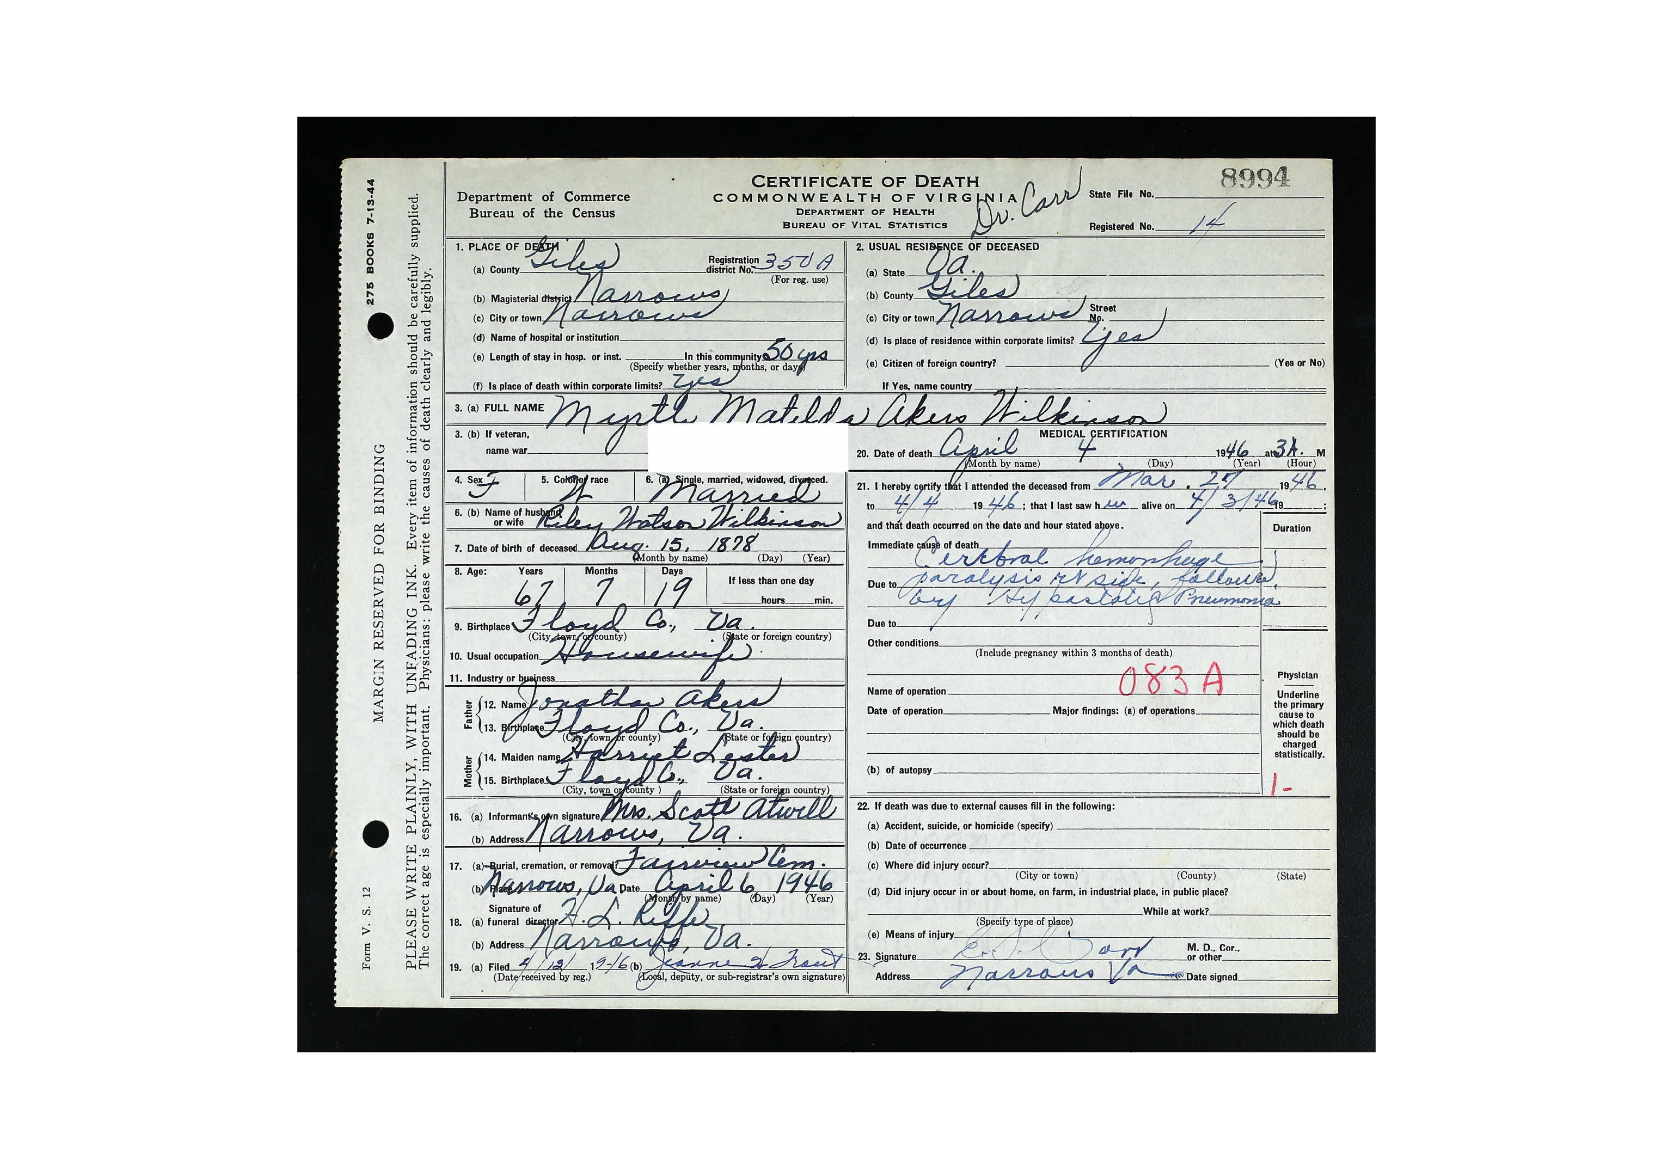 275 BOOKS 7-13-44
MARGIN RESERVED FOR BINDING
Form V. S. 12
PLEASE WRITE PLAINLY, WITH UNFADING INK. Every item of information should be carefully supplied.
The correct age is especially important. Physicians: please write the causes of death clearly and legibly.
Department of Commerce
Bureau of the Census
CERTIFICATE OF DEATH
COMMONWEALTH OF VIRGINIA
DEPARTMENT OF HEALTH
BUREAU OF VITAL STATISTICS
Dr. Carr
8994
State File No.
Registered No. 14
1. PLACE OF DEATH
(a) County Giles Registration district No. 350 A
(For reg. use)
(b) Magisterial district Narrows
(c) City or town Narrows
(d) Name of hospital or institution
(e) Length of stay in hosp. or inst. In this community 50 yrs
(Specify whether years, months, or days)
(f) Is place of death within corporate limits? yes
2. USUAL RESIDENCE OF DECEASED
(a) State Va.
(b) County Giles
(c) City or town Narrows Street No.
(d) Is place of residence within corporate limits? yes
(e) Citizen of foreign country? (Yes or No)
If Yes, name country
3. (a) FULL NAME Myrtle Matelda Akers Wilkinson
3. (b) If veteran,
name war
4. Sex F 5. Color or race W 6. (a) Single, married, widowed, divorced. Married
6. (b) Name of husband or wife Riley Watson Wilkinson
7. Date of birth of deceased Aug. 15, 1878
(Month by name) (Day) (Year)
8. Age: Years Months Days If less than one day
67 7 19 hours min.
9. Birthplace Floyd Co., Va.
(City, town, or county) (State or foreign country)
10. Usual occupation Housewife
11. Industry or business
Father
12. Name Jonathan Akers
13. Birthplace Floyd Co., Va.
(City, town, or county) (State or foreign country)
Mother
14. Maiden name Harriet Lester
15. Birthplace Floyd Co., Va.
(City, town or county ) (State or foreign country)
16. (a) Informant's own signature Mrs. Scott Atwell
(b) Address Narrows, Va.
17. (a) Burial, cremation, or removal? Fairview Cem.
(b) Place Narrows, Va Date April 6 1946
(Month by name) (Day) (Year)
Signature of
18. (a) funeral director H. L. Riffe
(b) Address Narrows, Va.
19. (a) Filed 4/12/ 19-46 (b) Jeanne H Trout
(Date received by reg.) (Local, deputy, or sub-registrar's own signature)
MEDICAL CERTIFICATION
20. Date of death April 4 1946 at 3A. M
(Month by name) (Day) (Year) (Hour)
21. I hereby certify that I attended the deceased from Mar. 27 1946,
to 4/4 1946; that I last saw her alive on 4/3/46 19 ;
and that death occurred on the date and hour stated above.
Duration
Immediate cause of death
Cerebral hemorrhage
Due to paralysis rt side, followed
by Hypostatic Pneumonia
Due to
Other conditions
(Include pregnancy within 3 months of death)
083 A
Name of operation
Date of operation Major findings: (a) of operations
(b) of autopsy
Physician
Underline
the primary
cause to
which death
should be
charged
statistically.
1-
22. If death was due to external causes fill in the following:
(a) Accident, suicide, or homicide (specify)
(b) Date of occurrence
(c) Where did injury occur?
(City or town) (County) (State)
(d) Did injury occur in or about home, on farm, in industrial place, in public place?
While at work?
(Specify type of place)
(e) Means of injury
23. Signature Carr M. D., Cor., or other
Address Narrows Va Date signed